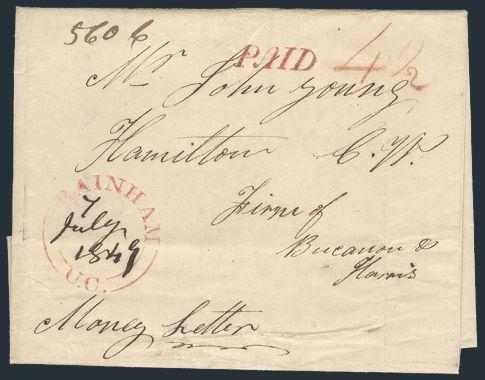 5606
PAID 4½
Mr John young
Hamilton C.W.
RAINHAM
7
July
1849
U.C.
Firm of
Bucanon &
Harris
Money Letter